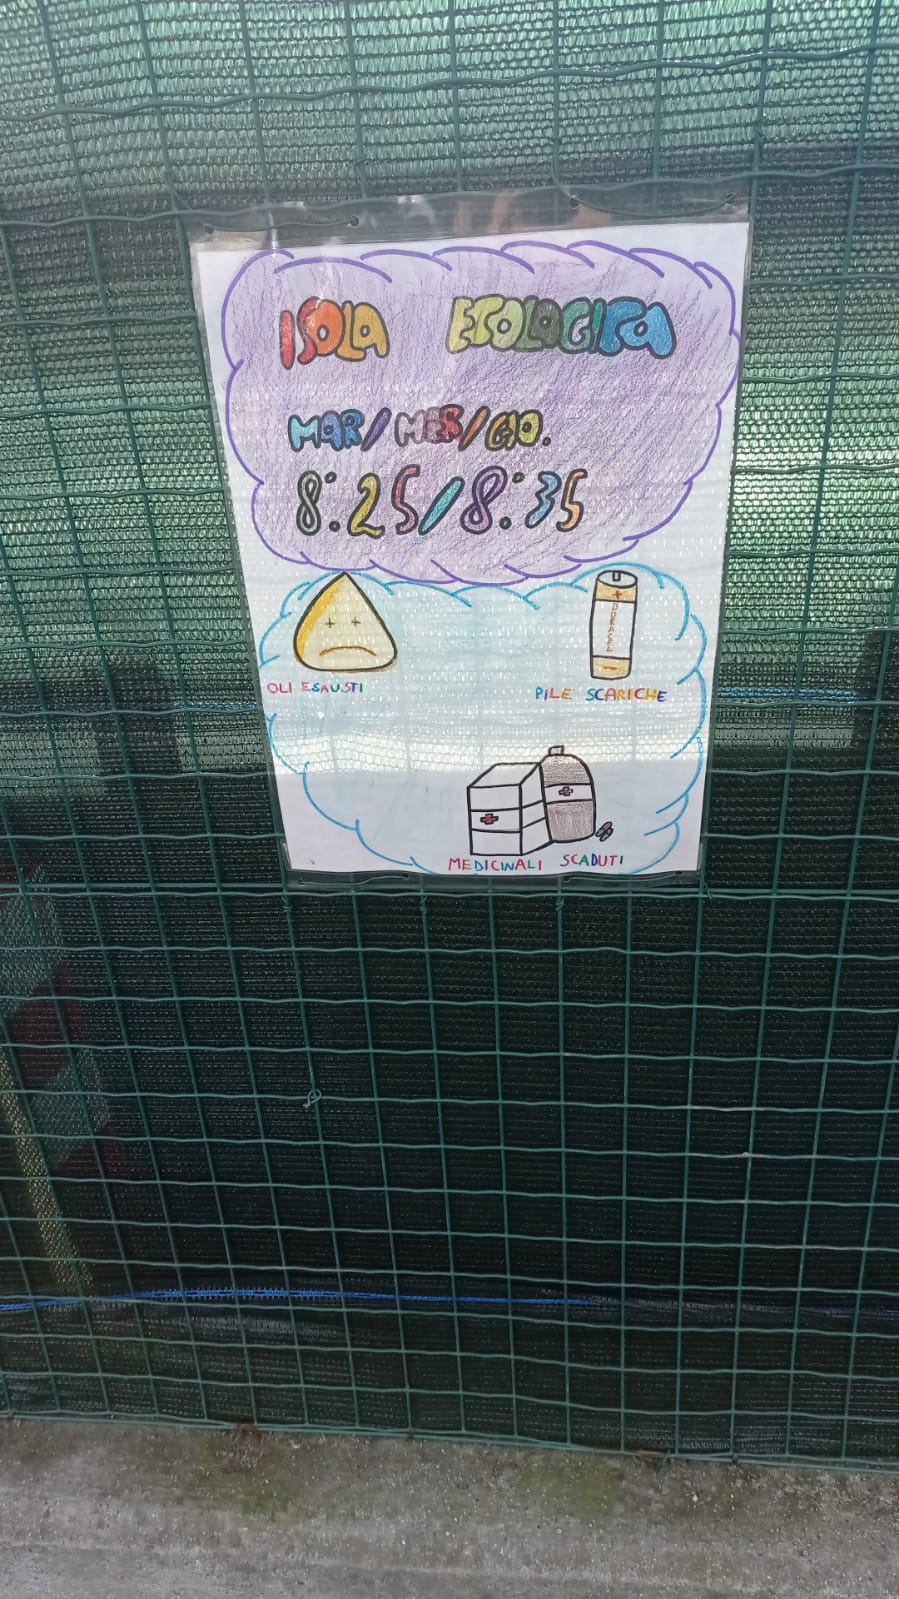 ISOLA ECOLOGICA
MAR/MER/GIO.
8:25/8:35
DURACEL
OLI ESAUSTI
PILE SCARICHE
MEDICINALI SCADUTI